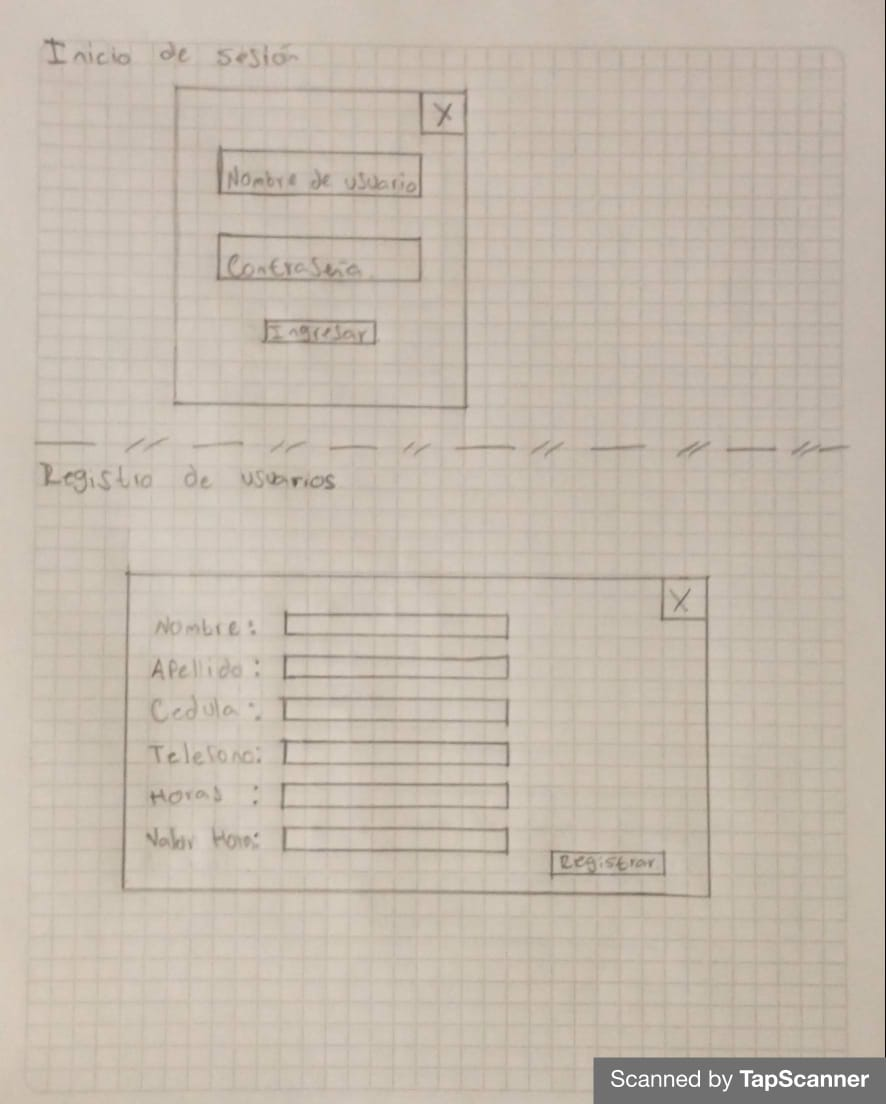 Inicio de sesión
X
Nombre de usuario
Contraseña
Ingresar
Registro de usuarios
X
Nombre:
Apellido:
Cedula:
Telefono:
Horas :
Valor Hora:
Registrar
Scanned by TapScanner